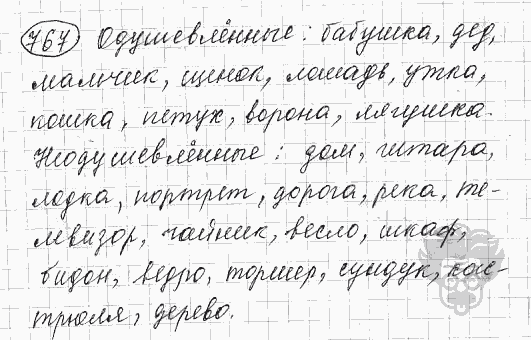 767 Одушевлённые: бабушка, дед,
мальчик, щенок, лошадь, утка,
кошка, петух, ворона, лягушка.
Неодушевлённые: дом, гитара,
лодка, портрет, дорога, река, те-
левизор, чайник, весло, шкаф,
бидон, ведро, торшер, сундук, кас-
трюля, дерево.